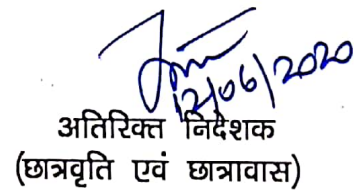 12/06/2020
अतिरिक्त निदेशक
(छात्रवृति एवं छात्रावास)